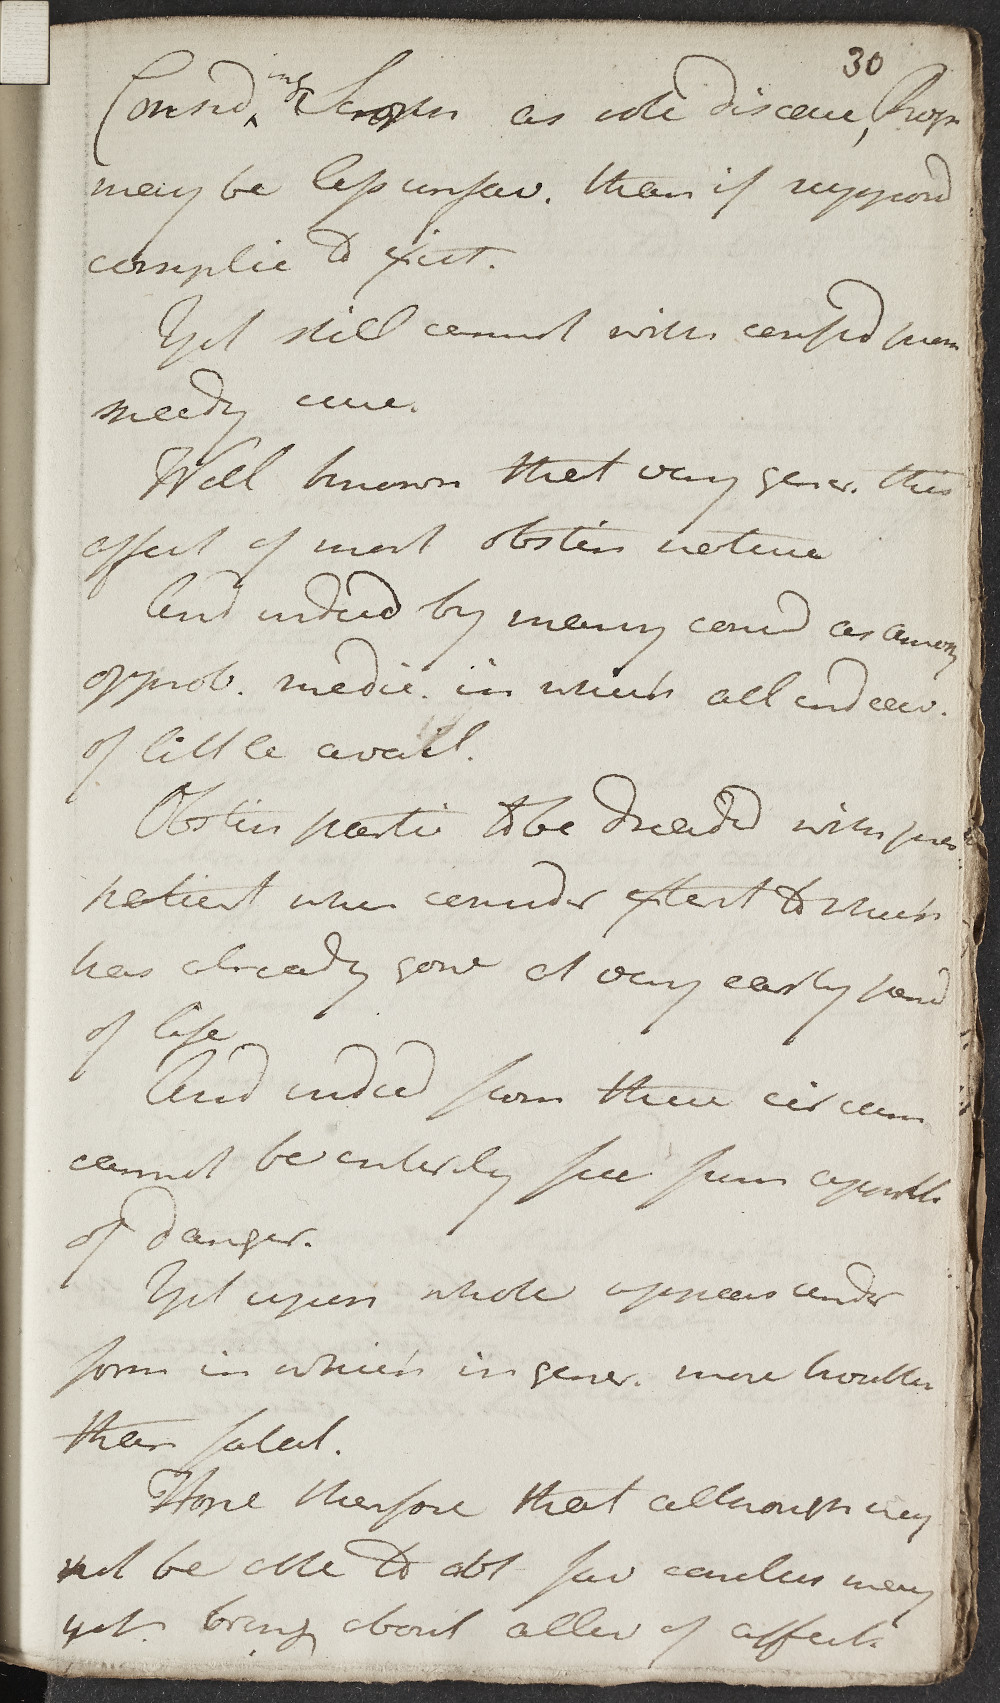 30
Consid^ing Scroph as sole disease, Progn
may be less unfav. than if suppos'd
complic to exist.
Yet still cannot with confid prom
speedy cure.
Well known that very gener. this
affect of most obstin nature
And indeed by many consid as among
opprob. medic. in which all endeav.
of little avail.
Obstin partic to be dreaded with pres
patient when consider extent to which
has already gone at very early period
of life
And indeed from these circum
cannot be entirely free from appreh
of danger.
Yet upon whole appears under
form in which in gener. more troubles
than fatal.
Hope therefore that although may
not be able to obt fav conclus may
yet bring about allev of affect.